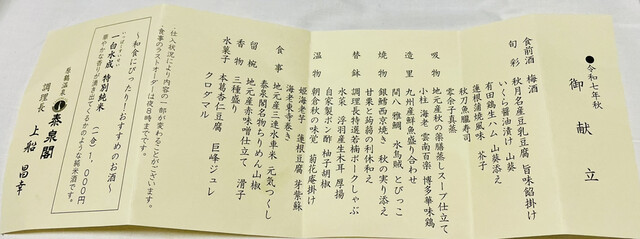 ●令和七年秋
御献立
食前酒 梅酒
旬彩 秋月名産豆乳豆腐 旨味餡掛け
いくら醤油漬け 山葵
有田鶏生ハム 山葵添え
蓮根蒲焼風味 芥子
秋刀魚朧寿司
零余子真蒸
吸物 地元産秋の薬膳蒸しスープ仕立て
小柱 海老 雲南百薬 博多華味鶏
造里 九州産鮮魚盛り合わせ
間八 雅鯛 水烏賊 とびっこ
焼物 銀鱈西京焼き 秋の実り添え
甘栗と蒟蒻の利休和え
替鉢 調理長特選若楠ポークしゃぶ
水菜 浮羽産生木耳 厚揚
自家製ポン酢 柚子胡椒
温物 朝倉秋の味覚 菊花庵掛け
姫海老芋 蓮根豆腐 芽紫蘇
海老東寺巻き
食事 地元産三連水車米 元気つくし
泰泉閣名物ちりめん山椒
留椀 地元産赤味噌仕立て 滑子
香物 三種盛り
水菓子 本葛杏仁豆腐 巨峰ジュレ
クロクマル
・仕入状況により内容の一部が変わることがございます。
・食事のラストオーダーは夜8時までです。
～和食にぴったり!おすすめのお酒～
いっぱくすいせい
一白水成 特別純米 (一合)1,000円
華やかな香りが湧き出てくるかのような純米酒です。
原鶴温泉 泰泉閣
調理長 上船 昌幸